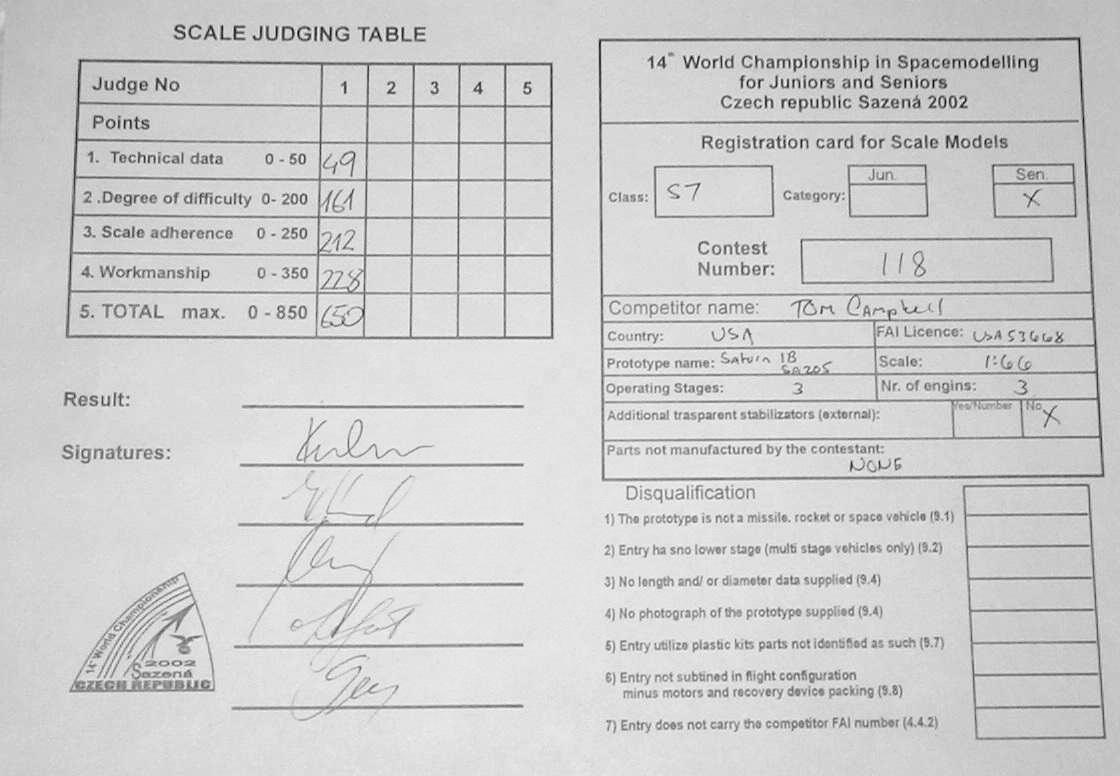 SCALE JUDGING TABLE
Judge No 1 2 3 4 5
Points
1. Technical data 0 - 50 49
2 .Degree of difficulty 0- 200 161
3. Scale adherence 0 - 250 212
4. Workmanship 0 - 350 228
5. TOTAL max. 0 - 850 650
Result:
Signatures:
14th World Championship
2002
Sazená
CZECH REPUBLIC
14th World Championship in Spacemodelling
for Juniors and Seniors
Czech republic Sazená 2002
Registration card for Scale Models
Class: S7 Category: Jun. Sen.
X
Contest
Number: 118
Competitor name: Tom Campbell
Country: USA FAI Licence: USA 53668
Prototype name: Saturn 1B
SA205 Scale: 1:66
Operating Stages: 3 Nr. of engins: 3
Additional trasparent stabilizators (external): Yes/Number No X
Parts not manufactured by the contestant:
NONE
Disqualification
1) The prototype is not a missile. rocket or space vehicle (9.1)
2) Entry ha sno lower stage (multi stage vehicles only) (9.2)
3) No length and/ or diameter data supplied (9.4)
4) No photograph of the prototype supplied (9.4)
5) Entry utilize plastic kits parts not identified as such (9.7)
6) Entry not subtined in flight configuration
minus motors and recovery device packing (9.8)
7) Entry does not carry the competitor FAI number (4.4.2)